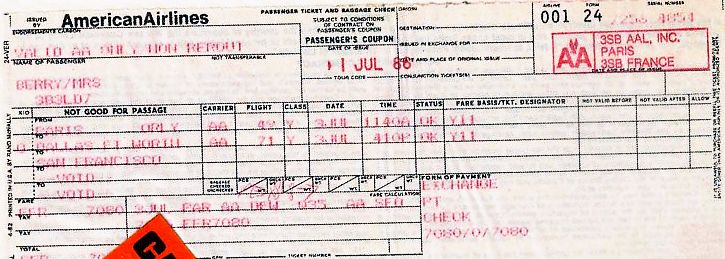 ISSUED BY AmericanAirlines
PASSENGER TICKET AND BAGGAGE CHECK
SUBJECT TO CONDITIONS OF CONTRACT ON PASSENGER'S COUPON
PASSENGER'S COUPON
ORIGIN
DESTINATION
AIRLINE
SERIAL NUMBER
001 24
ENDORSEMENTS
VALID AA ONLY NON REROUT
DATE OF ISSUE
ISSUED IN EXCHANGE FOR
NAME OF PASSENGER NOT TRANSFERABLE
1 JUL 86
DATE AND PLACE OF ORIGINAL ISSUE
3SB AAL, INC.
PARIS
3SB FRANCE
AA
DATE AND PLACE OF ISSUE
BERRY/MRS
TOUR CODE
CONJUNCTION TICKET(S)
3B3LD7
X/O NOT GOOD FOR PASSAGE CARRIER FLIGHT CLASS DATE TIME STATUS FARE BASIS/TKT. DESIGNATOR NOT VALID BEFORE NOT VALID AFTER ALLOW
FROM PARIS ORLY AA 49 Y 3JUL 1140A OK Y11
TO
O DALLAS FT WORTH AA 71 Y 3JUL 410P OK Y11
TO SAN FRANCISCO
TO VOID
TO VOID
BAGGAGE CHECKED UNCHECKED
PCS WT UNCK WT PCS WT UNCK WT PCS WT UNCK WT PCS WT UNCK WT
FARE FARE CALCULATION
FORM OF PAYMENT
EXCHANGE
FFR 7080 3JUL PAR AA DFW AA SFO
PT
TAX
FFR7080
CHECK
TAX
7080/0/7080
TOTAL
TICKET NUMBER
4-82 PRINTED IN U.S.A. BY RAND McNALLY